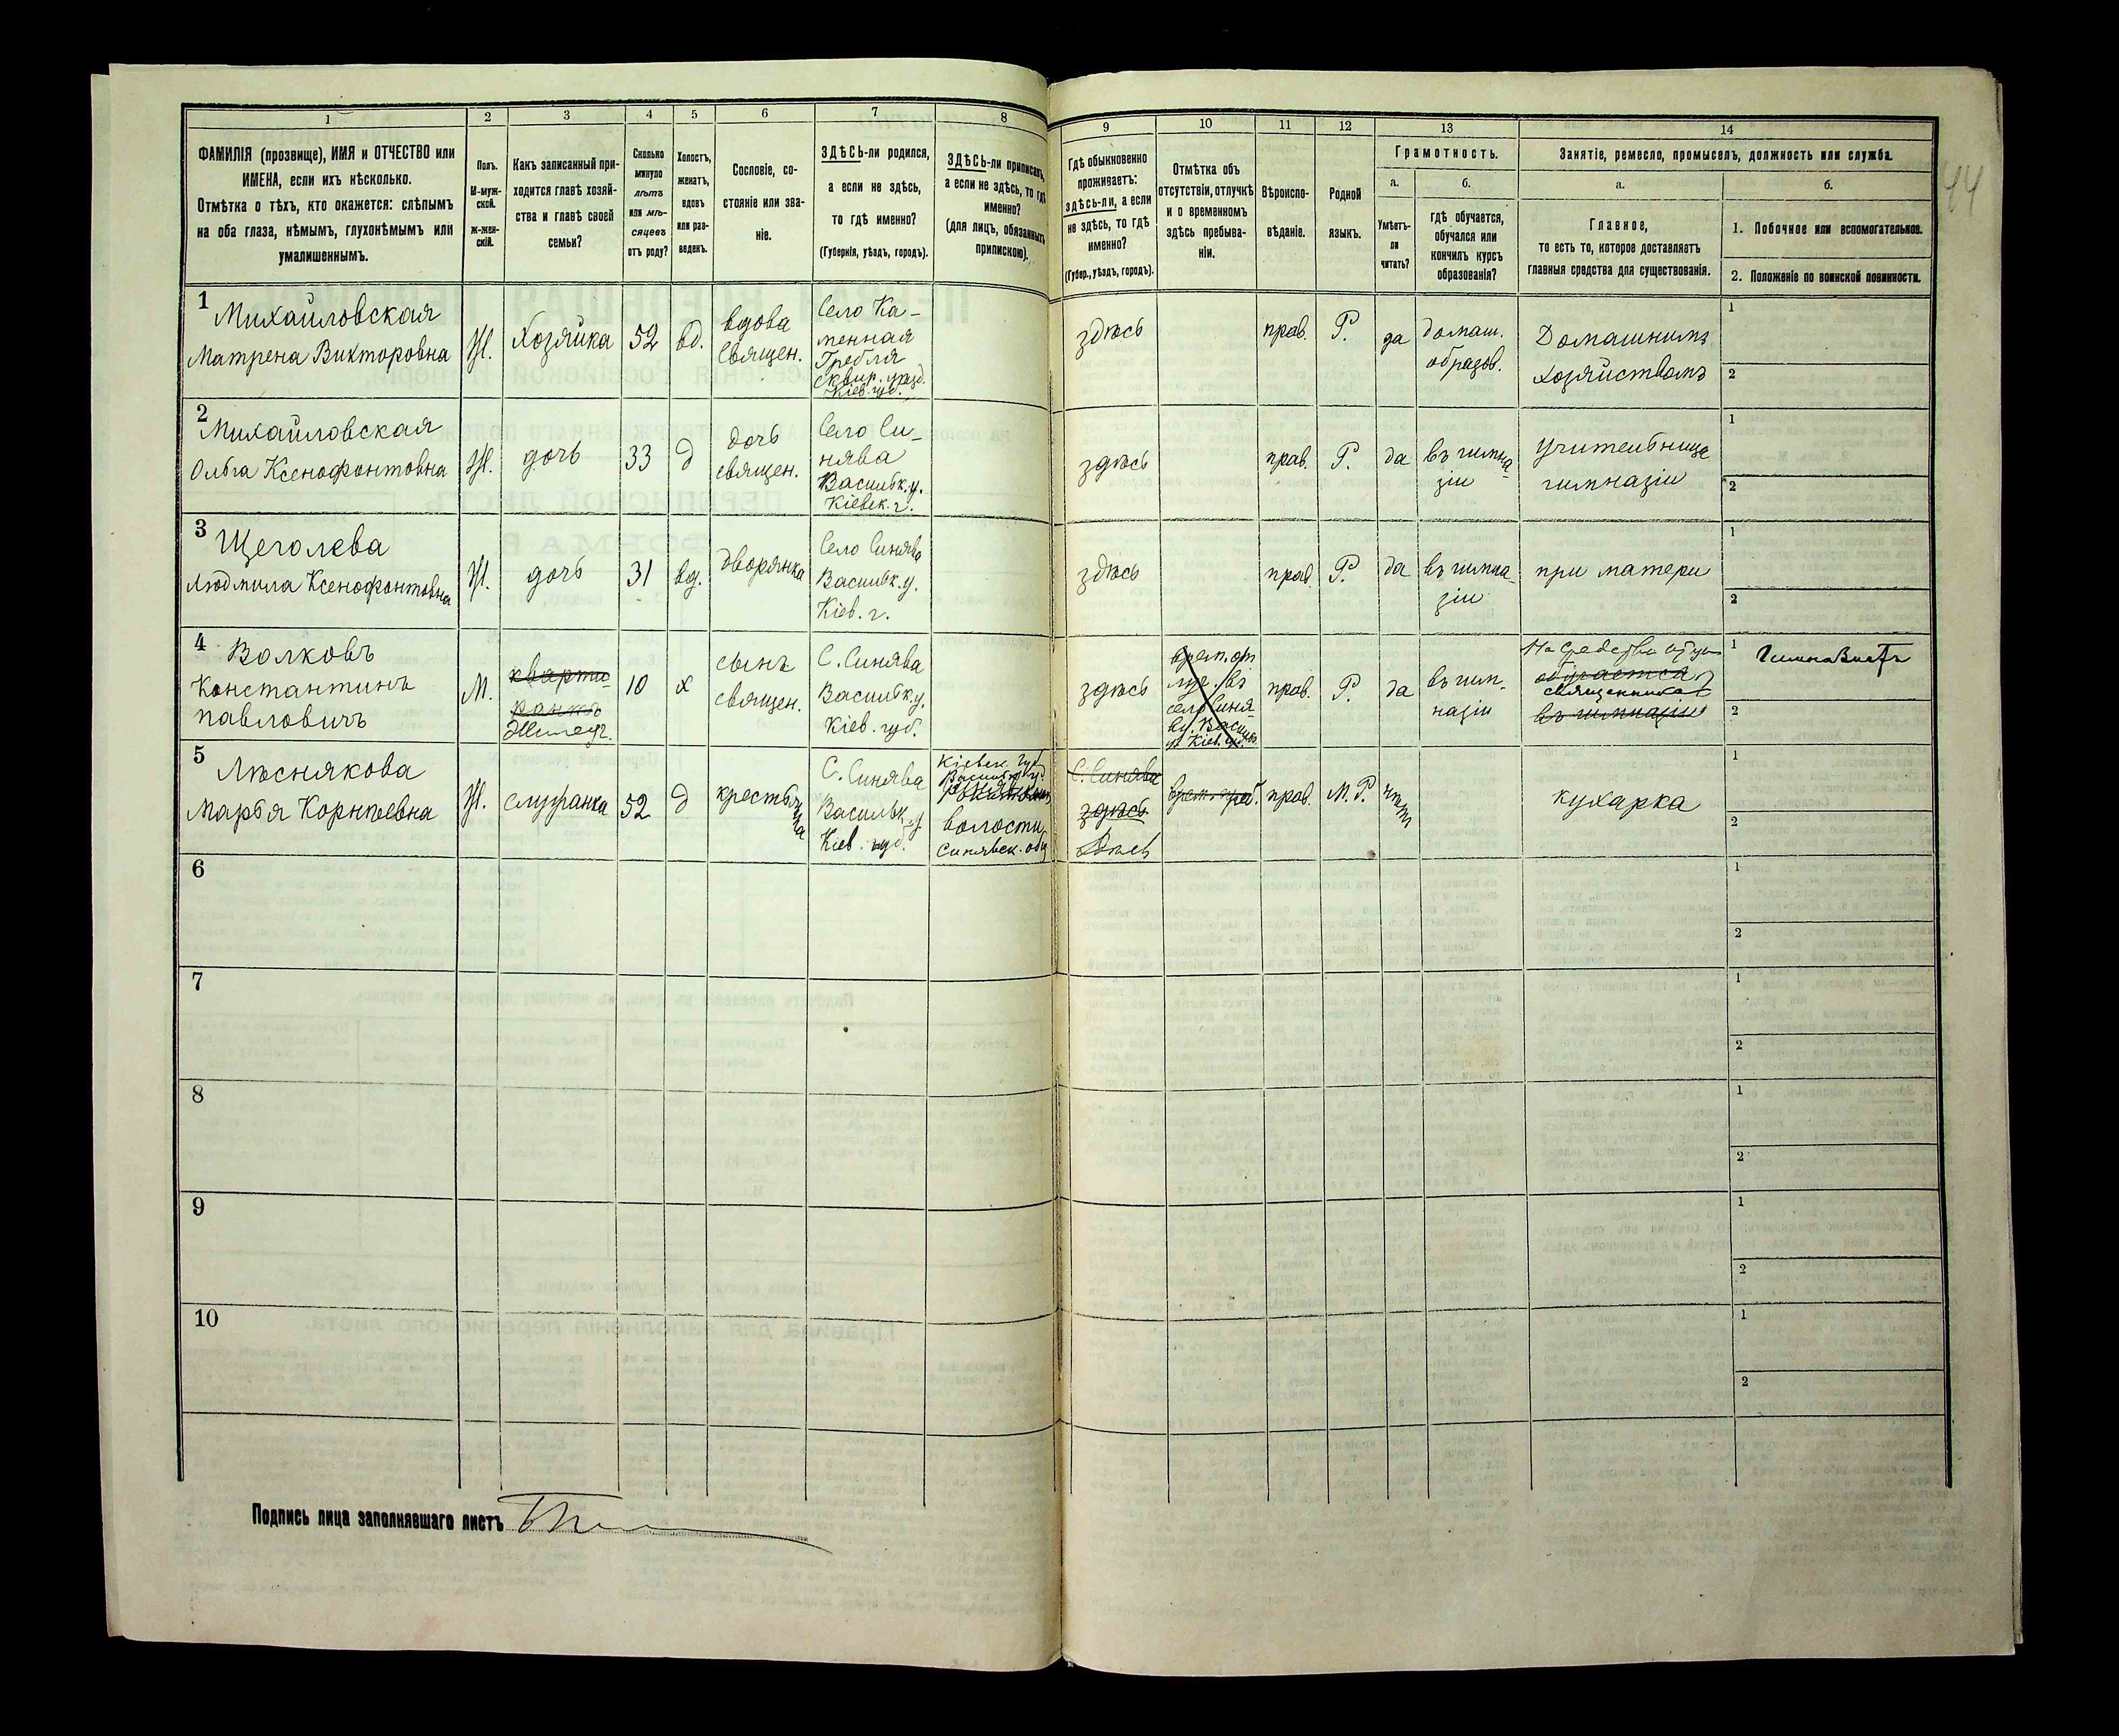 44
1 2 3 4 5 6 7 8 9 10 11 12 13 14
ФАМИЛІЯ (прозвище), ИМЯ и ОТЧЕСТВО или
ИМЕНА, если ихъ нѣсколько.
Отмѣтка о тѣхъ, кто окажется: слѣпымъ
на оба глаза, нѣмымъ, глухонѣмымъ или
умалишеннымъ.
Полъ.
М-муж-
ской.
Ж-жен-
скій.
Какъ записанный при-
ходится главѣ хозяй-
ства и главѣ своей
семьи?
Сколько
минуло
лѣтъ
или мѣ-
сяцевъ
отъ роду?
Холостъ,
женатъ,
вдовъ
или раз-
веденъ.
Сословіе, со-
стояніе или зва-
ніе.
ЗДѢСЬ-ли родился,
а если не здѣсь,
то гдѣ именно?
(Губернія, уѣздъ, городъ).
ЗДѢСЬ-ли приписанъ,
а если не здѣсь, то гдѣ
именно?
(для лицъ, обязанныхъ
припискою).
Гдѣ обыкновенно
проживаетъ:
здѣсь-ли, а если
не здѣсь, то гдѣ
именно?
(Губер., уѣздъ, городъ).
Отмѣтка объ
отсутствіи, отлучкѣ
и о временномъ
здѣсь пребыва-
ніи.
Вѣроиспо-
вѣданіе.
Родной
языкъ.
Грамотность.
а.
Умѣетъ-
ли
читать?
б.
гдѣ обучается,
обучался или
кончилъ курсъ
образованія?
Занятіе, ремесло, промыселъ, должность или служба.
а.
Главное,
то есть то, которое доставляетъ
главныя средства для существованія.
б.
1. Побочное или вспомогательное.
2. Положеніе по воинской повинности.
1
Михайловская
Матрена Викторовна
Ж.
Хозяйка
52
вд.
вдова
священ.
Село Ка-
менная
Гребля
Сквир. уезд.
Кіев. губ.
здѣсь
прав.
Р.
да
домаш.
образов.
Домашнимъ
хозяйствомъ
1
2
2
Михайловская
Ольга Ксенофонтовна
Ж.
дочь
33
д
дочь
священ.
Село Си-
нява
Васильк. у.
Кіевск. г.
здѣсь
прав.
Р.
да
въ гимна-
зіи
Учительница
гимназіи
1
2
3
Щеголева
Людмила Ксенофонтовна
Ж.
дочь
31
вд.
дворянка
Село Синява
Васильк. у.
Кіев. г.
здѣсь
прав.
Р.
да
въ гимна-
зіи
при матери
1
2
4
Волковъ
Константинъ
Павловичъ
М.
кварти-
рантъ
Жилецъ
10
х
сынъ
священ.
С. Синява
Васильк. у.
Кіев. губ.
здѣсь
въ
село Синя-
ву. Васильк.
у. Кіев. губ.
прав.
Р.
да
въ гим-
назіи
На средства отца
обучается
священника
въ гимназіи
1
Гимназистъ
2
5
Лѣснякова
Марья Корнѣевна
Ж.
служанка
52
д
крестьянка
С. Синява
Васильк. у.
Кіев. губ.
Кіевск. губ.
Васильк. у.
волости
Синявск. общ
С. Синява
здѣсь
здѣсь
прав.
М. Р.
нѣтъ
кухарка
1
2
6
1
2
7
1
2
8
1
2
9
1
2
10
1
2
Подпись лица заполнявшаго листъ